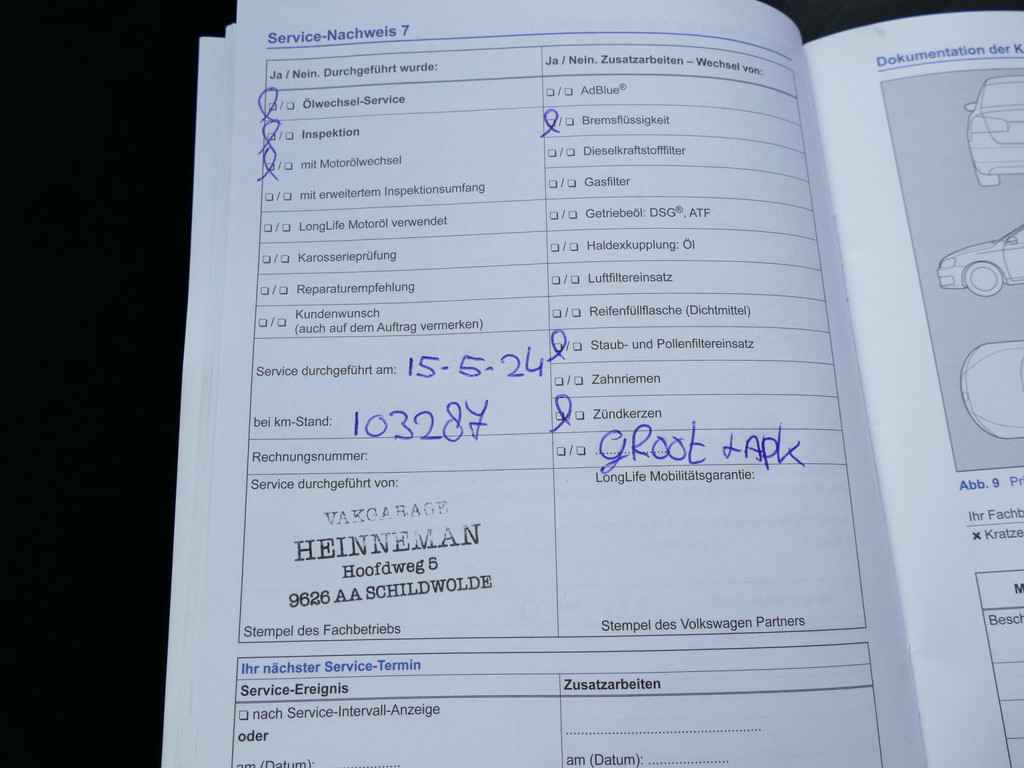 Service-Nachweis 7
Ja / Nein. Durchgeführt wurde:
❏ / ❏ Ölwechsel-Service
❏ / ❏ Inspektion
❏ / ❏ mit Motorölwechsel
❏ / ❏ mit erweitertem Inspektionsumfang
❏ / ❏ LongLife Motoröl verwendet
❏ / ❏ Karosserieprüfung
❏ / ❏ Reparaturempfehlung
❏ / ❏ Kundenwunsch
(auch auf dem Auftrag vermerken)
Service durchgeführt am: 15-5-24
bei km-Stand: 103287
Rechnungsnummer:
Service durchgeführt von:
VAKGARAGE
HEINNEMAN
Hoofdweg 5
9626 AA SCHILDWOLDE
Stempel des Fachbetriebs
Ja / Nein. Zusatzarbeiten – Wechsel von:
❏ / ❏ AdBlue®
❏ / ❏ Bremsflüssigkeit
❏ / ❏ Dieselkraftstofffilter
❏ / ❏ Gasfilter
❏ / ❏ Getriebeöl: DSG®, ATF
❏ / ❏ Haldexkupplung: Öl
❏ / ❏ Luftfiltereinsatz
❏ / ❏ Reifenfüllflasche (Dichtmittel)
❏ / ❏ Staub- und Pollenfiltereinsatz
❏ / ❏ Zahnriemen
❏ / ❏ Zündkerzen
❏ / ❏ GROOT + APK
LongLife Mobilitätsgarantie:
Stempel des Volkswagen Partners
Ihr nächster Service-Termin
Service-Ereignis
❏ nach Service-Intervall-Anzeige
oder
am (Datum): ....................
Zusatzarbeiten
am (Datum): ....................
Dokumentation der
Abb. 9
Ihr
✖ Kratze